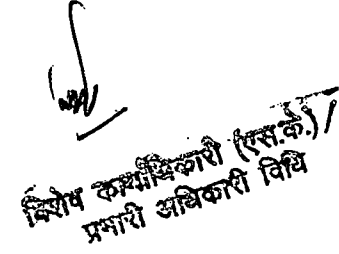 विशेष कार्याधिकारी (एस.के.) /
प्रभारी अधिकारी विधि